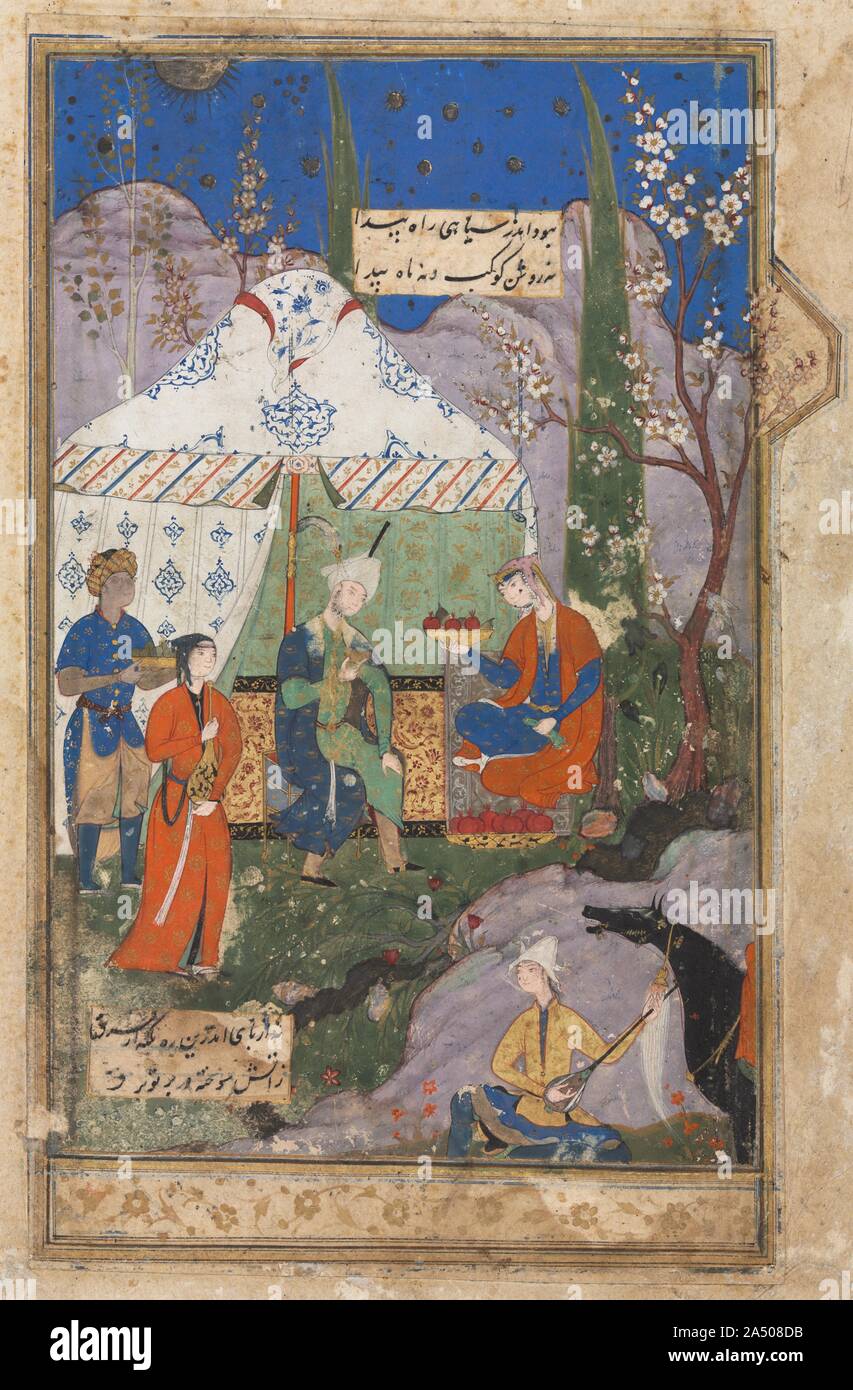 نبود اندر سیاهی راه پیدا
نه روشن کوکب و نه ماه پیدا
اندرین ره
سوخته
a
alamy
Image ID: 2A508DB
www.alamy.com